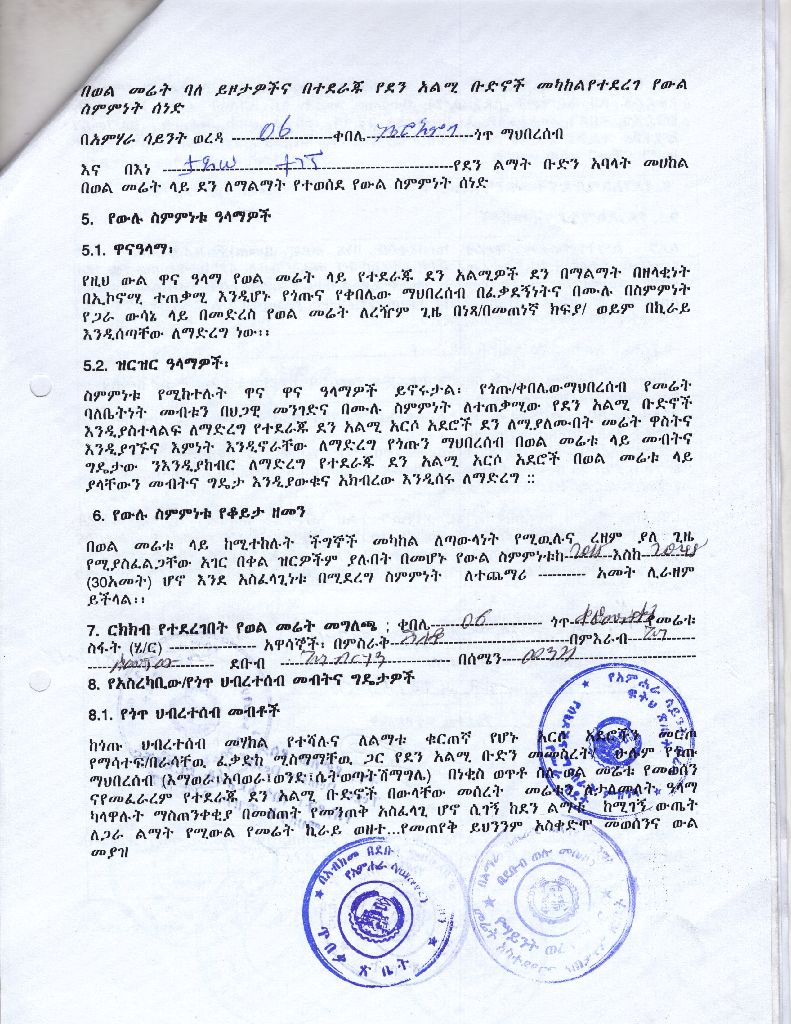 በወል መሬት ባለ ይዞታዎችና በተደራጁ የደን አልሚ ቡድኖች መካከልየተደረገ የውል
ስምምነት ሰነድ
በአምሃራ ሳይንት ወረዳ 06 ቀበሌ ጎጥ ማህበረሰብ
እና በእነ የደን ልማት ቡድን አባላት መሀከል
በወል መሬት ላይ ደን ለማልማት የተወሰደ የውል ስምምነት ሰነድ
5. የውሉ ስምምነቱ ዓላማዎች
5.1. ዋናዓላማ፡
የዚህ ውል ዋና ዓላማ የወል መሬት ላይ የተደራጁ ደን አልሚዎች ደን በማልማት በዘላቂነት
በኢኮኖሚ ተጠቃሚ እንዲሆኑ የጎጡና የቀበሌው ማህበረሰብ በፈቃደኝነትና በሙሉ በስምምነት
የጋራ ውሳኔ ላይ በመድረስ የወል መሬት ለረዥም ጊዜ በነጻ/በመጠነኛ ክፍያ/ ወይም በኪራይ
እንዲሰጣቸው ለማድረግ ነው፡፡
5.2. ዝርዝር ዓላማዎች፡
ስምምነቱ የሚከተሉት ዋና ዋና ዓላማዎች ይኖሩታል፡ የጎጡ/ቀበሌውማህበረሰብ የመሬት
ባለቤትነት መብቱን በህጋዊ መንገድና በሙሉ ስምምነት ለተጠቃሚው የደን አልሚ ቡድኖች
እንዲያስተላልፍ ለማድረግ የተደራጁ ደን አልሚ አርሶ አደሮች ደን ለሚያለሙበት መሬት ዋስትና
እንዲያገኙና እምነት እንዲኖራቸው ለማድረግ የጎጡን ማህበረሰብ በወል መሬቱ ላይ መብትና
ግዴታው ንእንዲያከብር ለማድረግ የተደራጁ ደን አልሚ አርሶ አደሮች በወል መሬቱ ላይ
ያላቸውን መብትና ግዴታ እንዲያውቁና አክብረው እንዲሰሩ ለማድረግ ::
6. የውሉ ስምምነቱ የቆይታ ዘመን
በወል መሬቱ ላይ ከሚተከሉት ችግኞች መካከል ለጣውላነት የሚዉሉና ረዘም ያለ ጊዜ
የሚያስፈልጋቸው አገር በቀል ዝርዎችም ያሉበት በመሆኑ የውል ስምምነቱከ እስከ
(30አመት) ሆኖ እንደ አስፈላጊነቱ በሚደረግ ስምምነት ለተጨማሪ ---------- አመት ሊራዘም
ይችላል፡፡
7. ርክክብ የተደረገበት የወል መሬት መግለጫ ; ቀበሌ 06 ጎጥ የመሬቱ
ስፋት (ሄ/ር) ---------------- አዋሳኞች፡ በምስራቅ በምእራብ
ደቡብ በሰሜን
8. የአስረካቢው/የጎጥ ህብረተሰብ መብትና ግዴታዎች
8.1. የጎጥ ህብረተሰብ መብቶች
ከጎጡ ህብረተሰብ መሃከል የተሻሉና ለልማቱ ቁርጠኛ የሆኑ አርሶ አደሮችን መርጦ
የማሳተፍ/በራሳቸዉ ፈቃድከ ሚስማማቸዉ ጋር የደን አልሚ ቡድን መመስረት/ ሁሉም የጎጡ
ማህበረሰብ (እማወራ፡አባወራ፡ወንድ፡ሴትወጣትሽማግሌ) በነቂስ ወጥቶ ስለ ወል መሬቱ የመወሰን
ናየመፈራረም የተደራጁ ደን አልሚ ቡድኖች በውላቸው መሰረት መሬቱን ለታለመለት ዓላማ
ካላዋሉት ማስጠንቀቂያ በመስጠት የመንጠቅ አስፈላጊ ሆኖ ሲገኝ ከደን ልማቱ ከሚገኝ ውጤት
ለጋራ ልማት የሚውል የመሬት ኪራይ ወዘተ...የመጠየቅ ይህንንም አስቀድሞ መወሰንና ውል
መያዝ
ጽ ቤት